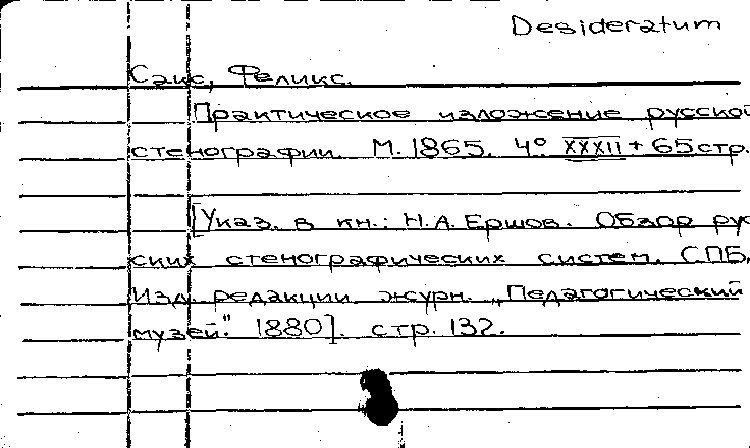 Desideratum
Сакс, Феликс.
Практическое изложение русской
стенографии. М. 1865. 4° XXXII + 65 стр.
[Указ. в кн.: Н.А. Ершов. Обзор рус
ских стенографических систем. СПБ.
Изд. редакции журн. „Педагогический
музей". 1880]. стр. 132.